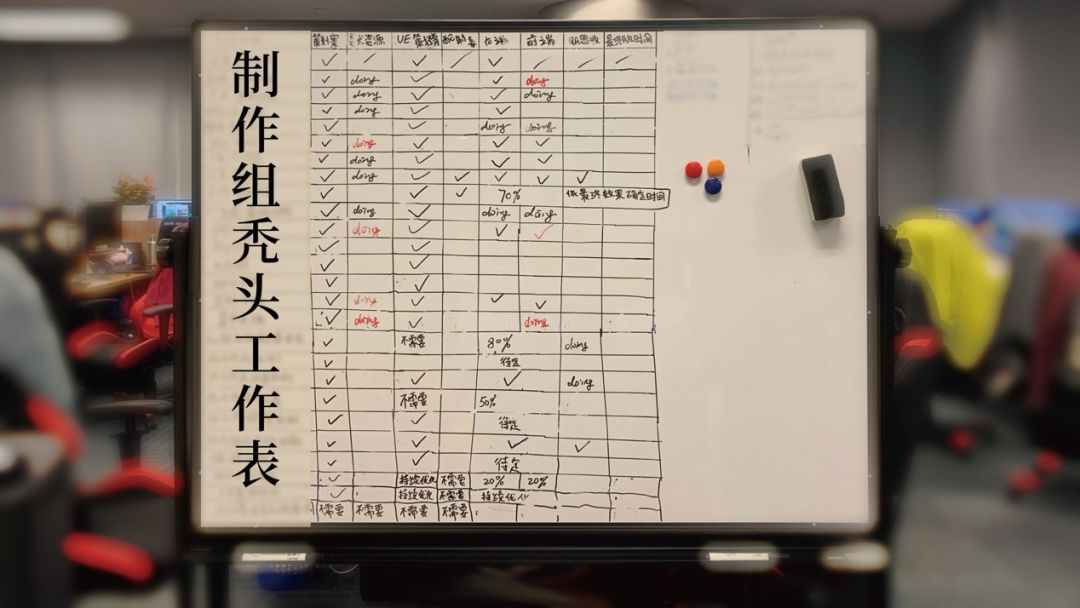 制作组秃头工作表
策划案 美术资源 UE 配置表 后端 前端 QA验收 最终版时间
✓ ✓ ✓ ✓ ✓ ✓ ✓ ✓
✓ doing ✓ ✓ doing
✓ doing ✓ ✓ doing
✓ doing ✓ ✓
✓ ✓ doing doing
✓ doing ✓ ✓ ✓
✓ doing ✓ ✓ ✓
✓ doing ✓ ✓ ✓ ✓ ✓
✓ ✓ ✓ 70% 依最终效果确定时间
✓ doing ✓ doing doing
✓ doing ✓ ✓ ✓
✓ ✓
✓ ✓
✓ ✓
✓ doing ✓ ✓ ✓
✓ doing ✓ doing
✓ 不需要 80% doing
✓ 待定
✓ ✓ ✓ doing
✓ 不需要 50%
✓ ✓ 待定
✓ ✓ ✓ ✓
✓ ✓ 待定
✓ 持续优化 不需要 20% 20%
✓ 持续优化 不需要 持续优化
不需要 不需要 不需要 不需要